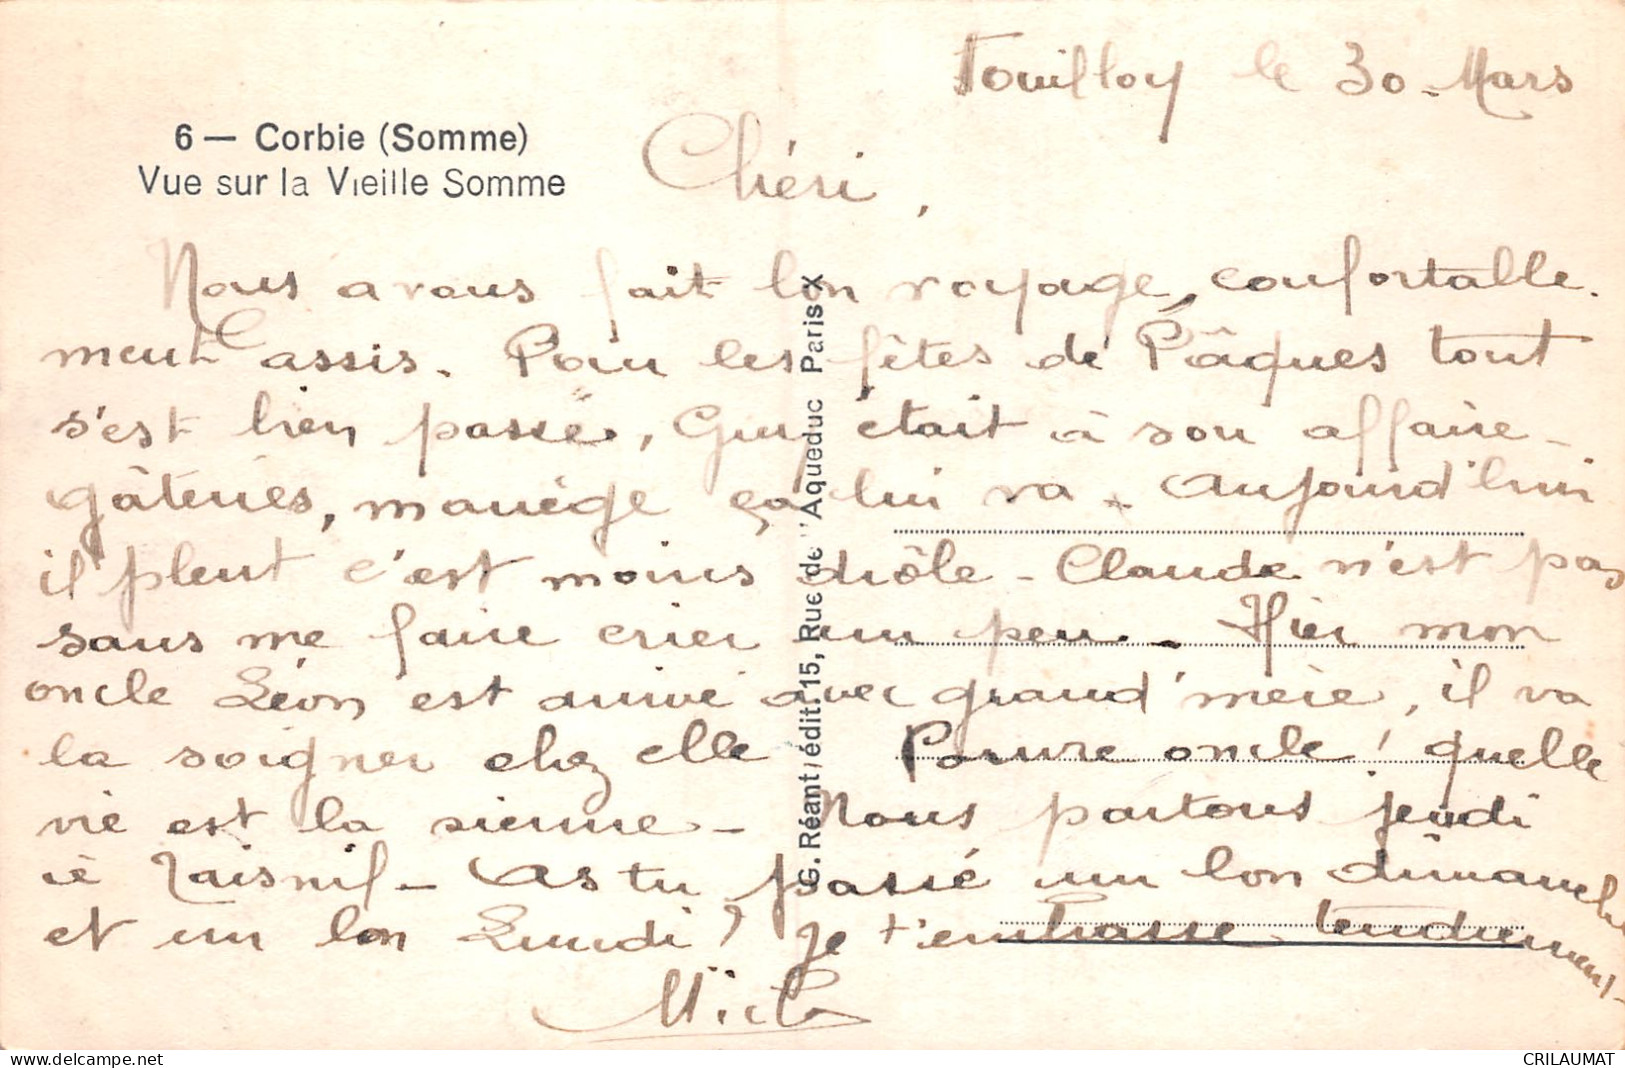 Fouilloy le 30 - Mars
6 — Corbie (Somme)
Vue sur la Vieille Somme
Chéri,
Nous avons fait bon voyage, confortable.
ment assis. Pour les fêtes de Pâques tout
s'est bien passé, Guy était à son affaire -
gâteries, manège ça lui va - Aujourd'hui
il pleut c'est moins drôle - Claude n'est pas
sans me faire crier un peu. - Hier mon
oncle Léon est arrivé avec grand'mère, il va
la soigner chez elle Pauvre oncle ! quelle
vie est la sienne - Nous partons jeudi
à - As tu passé un bon dimanche
et un bon Lundi ? Je t'embrasse tendrement -
G. Réant, édit. 15, Rue de l'Aqueduc Paris X
delcampe.net
CRILAUMAT